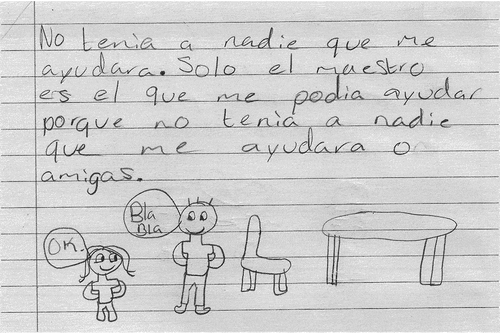 No tenia a nadie que me
ayudara. Solo el maestro
es el que me podia ayudar
porque no tenia a nadie
que me ayudara o
amigas.
Bla
Bla
OK.